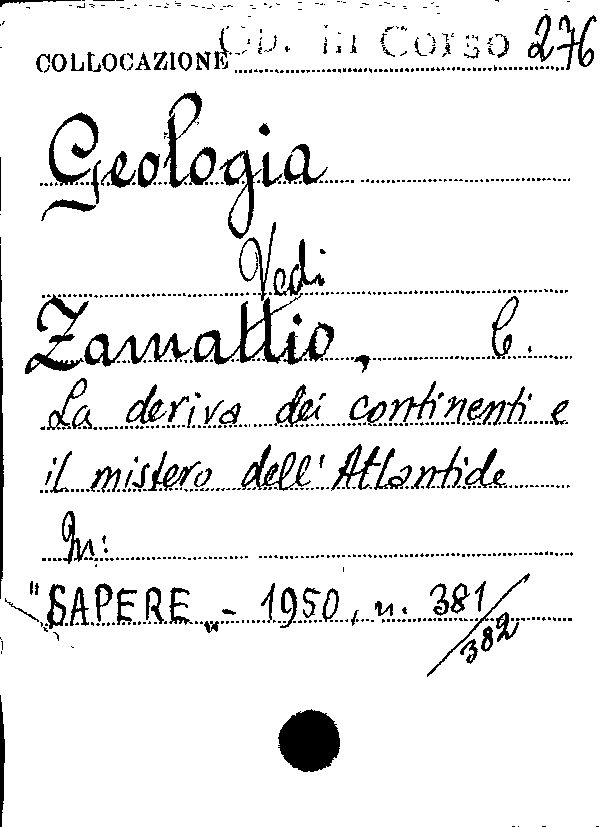 COLLOCAZIONE Ob. in Corso 276
Geologia
Vedi
Zamattio, C.
La deriva dei continenti e
il mistero dell'Atlantide
In:
"SAPERE„ - 1950, n. 381/
382